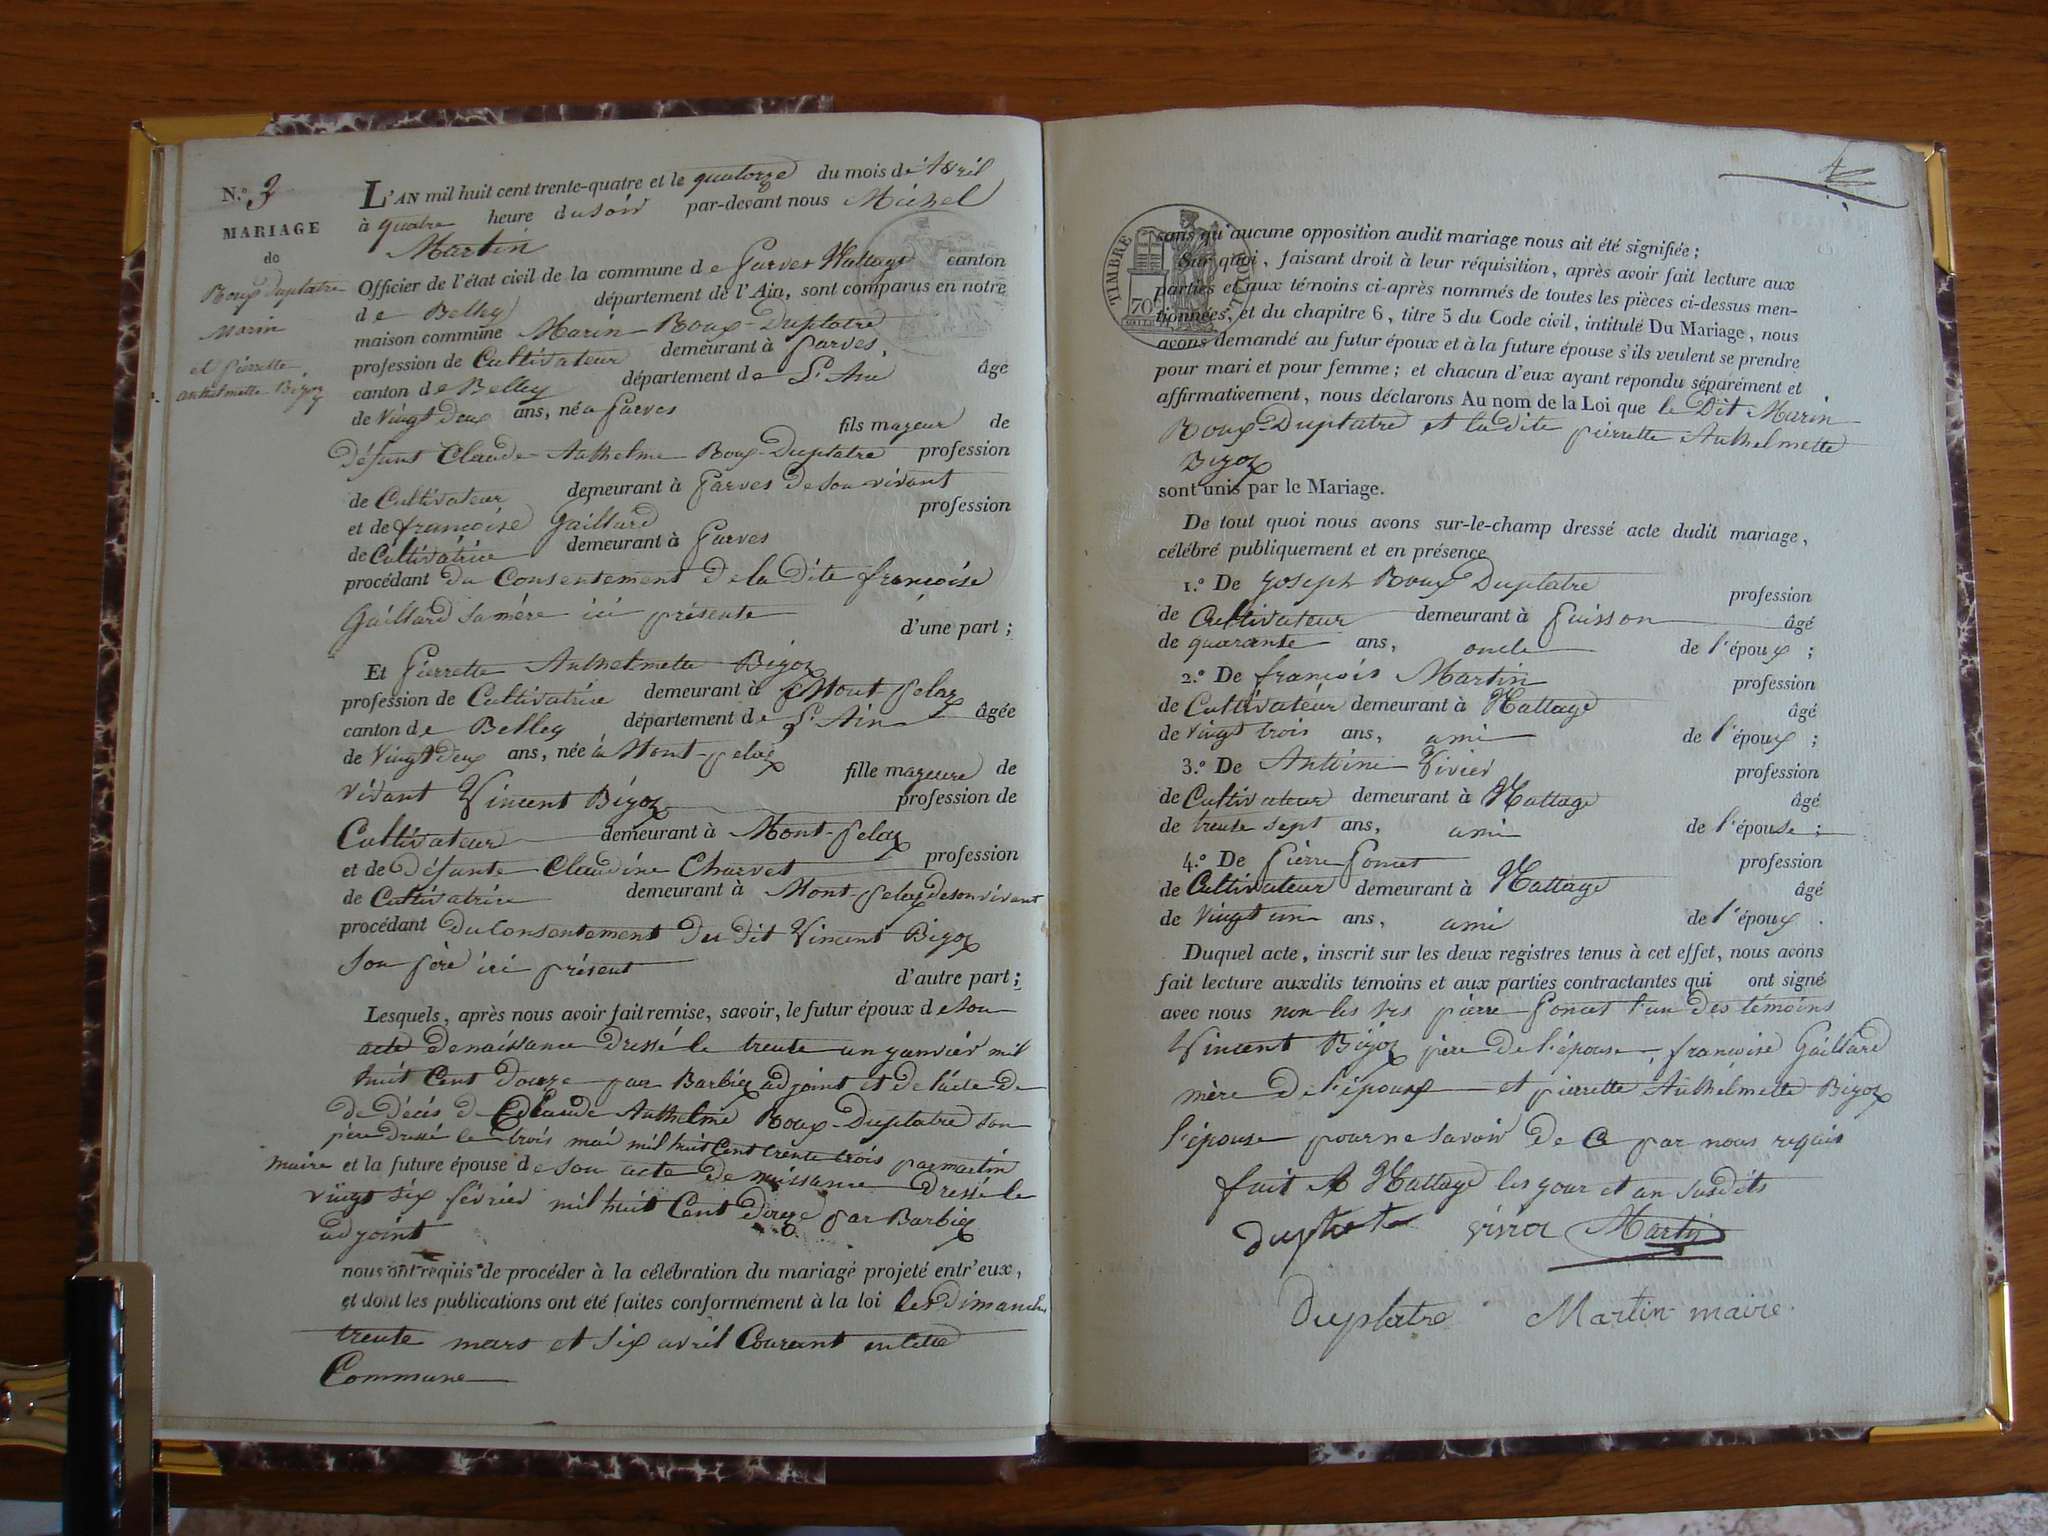 N.º 3
MARIAGE
de
Roux Duplatre
Marin
et pierrette
anthelmette Bigoz
L'AN mil huit cent trente-quatre et le quatorze du mois de Avril
à quatre heure du soir par-devant nous Michel
Martin
Officier de l'état civil de la commune de Parves Nattage canton
de Belley département de l'Ain, sont comparus en notre
maison commune Marin Roux-Duplatre
profession de Cultivateur demeurant à parves,
canton de Belley département de L'Ain âgé
de vingt deux ans, né a parves
fils majeur de
défunt Claude Anthelme Roux-Duplatre profession
de Cultivateur demeurant à parves de son vivant
et de françoise Gaillard profession
de Cultivatrice demeurant à parves
procédant du Consentement de la dite françoise
Gaillard sa mère ici présente
d'une part ;
Et Pierrette Anthelmette Bigoz
profession de Cultivatrice demeurant à Mont-pelaz
canton de Belley département de L'Ain âgée
de vingt deux ans, née à Mont-pelaz
fille majeure de
vivant Vincent Bigoz profession de
Cultivateur demeurant à Mont-pelaz
et de défunte Claudine Charvet profession
de Cultivatrice demeurant à Mont pelaz de son vivant
procédant du Consentement du dit Vincent Bigoz
son père ici présent
d'autre part ;
Lesquels, après nous avoir fait remise, savoir, le futur époux de son
acte de naissance dressé le trente un janvier mil
huit Cent douze par Barbier adjoint et de l'acte de
de décès de Claude Anthelme Roux-Duplatre son
père dressé le trois mai mil huit Cent trente trois par martin
maire et la future épouse de son acte de naissance dressé le
vingt six février mil huit Cent douze par Barbier
adjoint
nous ont requis de procéder à la célébration du mariage projeté entr'eux,
et dont les publications ont été faites conformément à la loi les dimanche
trente mars et six avril Courant en cette
Commune
4
TIMBRE
70c
sans qu'aucune opposition audit mariage nous ait été signifiée ;
Sur quoi, faisant droit à leur réquisition, après avoir fait lecture aux
parties et aux témoins ci-après nommés de toutes les pièces ci-dessus men-
tionnées, et du chapitre 6, titre 5 du Code civil, intitulé Du Mariage, nous
avons demandé au futur époux et à la future épouse s'ils veulent se prendre
pour mari et pour femme ; et chacun d'eux ayant répondu séparément et
affirmativement, nous déclarons Au nom de la Loi que le Dit Marin
Roux-Duplatre et la dite pierrette Anthelmette
Bigoz
sont unis par le Mariage.
De tout quoi nous avons sur-le-champ dressé acte dudit mariage,
célébré publiquement et en présence
1.º De Joseph Roux Duplatre profession
de Cultivateur demeurant à Puisson âgé
de quarante ans, oncle de l'époux ;
2.º De françois Martin profession
de Cultivateur demeurant à Nattage âgé
de vingt trois ans, ami de l'époux ;
3.º De Antoine Vivier profession
de Cultivateur demeurant à Nattage âgé
de trente sept ans, ami de l'épouse ;
4.º De Pierre Poncet profession
de Cultivateur demeurant à Nattage âgé
de vingt un ans, ami de l'époux .
Duquel acte, inscrit sur les deux registres tenus à cet effet, nous avons
fait lecture auxdits témoins et aux parties contractantes qui ont signé
avec nous non les pierre Poncet l'un des témoins
Vincent Bigoz père de l'épouse, françoise Gaillard
mère de l'époux et pierrette Anthelmette Bigoz
l'épouse pour ne savoir de Ce par nous requis
fait A Nattage les jour et an susdits
Martin
Duplatre Martin maire